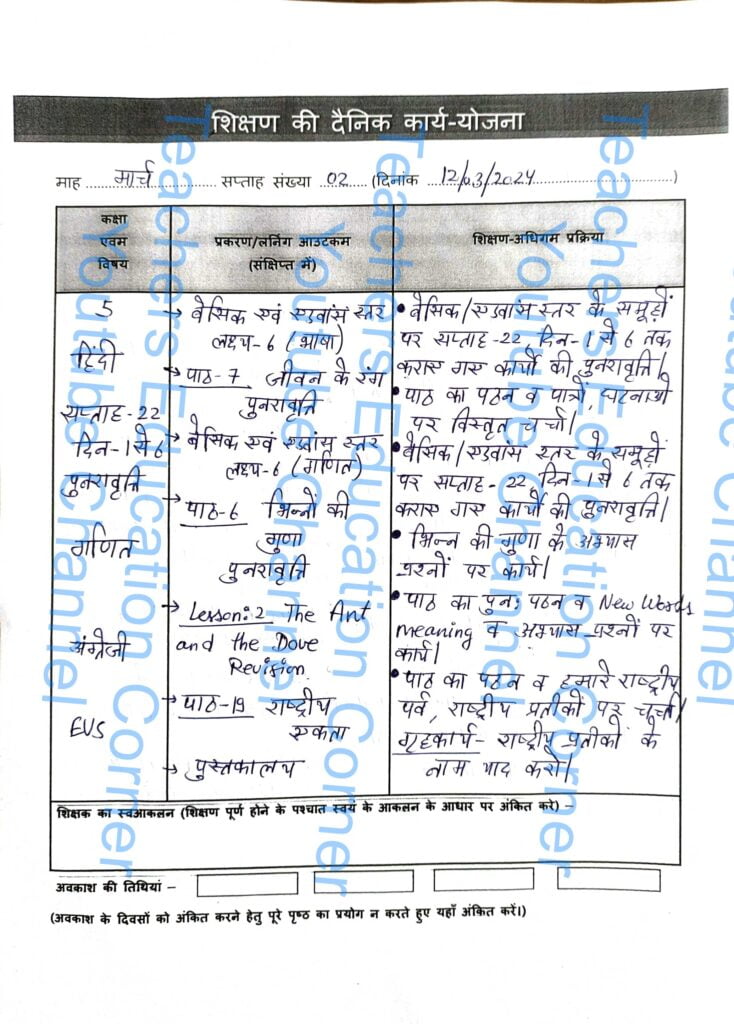 शिक्षण की दैनिक कार्य-योजना
माह ...... मार्च ...... सप्ताह संख्या ..02.. (दिनांक ...12/03/2024......)
कक्षा
एवम
विषय
प्रकरण/लर्निग आउटकम
(संक्षिप्त में)
शिक्षण-अधिगम प्रक्रिया
5
हिंदी
सप्ताह-22
दिन-1 से 6
पुनरावृत्ति
गणित
अंग्रेजी
EVS
→ बेसिक एवं एडवांस स्तर
लक्ष्य-6 (भाषा)
→ पाठ-7 जीवन के रंग
पुनरावृत्ति
→ बेसिक एवं एडवांस स्तर
लक्ष्य-6 (गणित)
→ पाठ-6 भिन्नों की
गुणा
पुनरावृत्ति
→ Lesson:2 The Ant
and the Dove
Revision.
→ पाठ-19 राष्ट्रीय
एकता
→ पुस्तकालय
• बेसिक/एडवांस स्तर के समूहों
पर सप्ताह-22, दिन-1 से 6 तक
कराए गए कार्यो की पुनरावृत्ति।
• पाठ का पठन व पात्रों, घटनाओं
पर विस्तृत चर्चा।
• बेसिक/एडवांस स्तर के समूहों
पर सप्ताह-22 दिन-1 से 6 तक
कराए गए कार्यो की पुनरावृत्ति।
• भिन्न की गुणा के अभ्यास
प्रश्नों पर कार्य।
• पाठ का पुनः पठन व New Words
meaning व अभ्यास प्रश्नों पर
कार्य।
• पाठ का पठन व हमारे राष्ट्रीय
पर्व, राष्ट्रीय प्रतीकों पर चर्चा।
गृहकार्य- राष्ट्रीय प्रतीकों के
नाम याद करो।
शिक्षक का स्वआकलन (शिक्षण पूर्ण होने के पश्चात स्वयं के आकलन के आधार पर अंकित करे) –
अवकाश की तिथियां –
(अवकाश के दिवसों को अंकित करने हेतु पूरे पृष्ठ का प्रयोग न करते हुए यहाँ अंकित करें।)
Teachers Education Corner
Youtube Channel
Teachers Education Corner
Youtube Channel
Teachers Education Corner
Youtube Channel